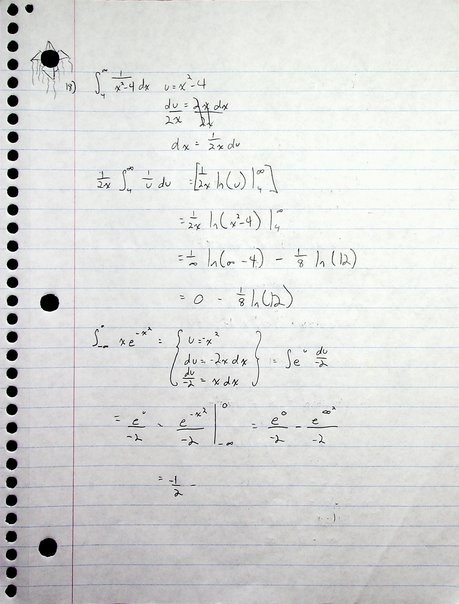 18) ∫₄^∞ 1/(x²-4) dx u = x²-4
du/2x = 2x dx/2x
dx = 1/2x du
1/2x ∫₄^∞ 1/u du = [1/2x ln(u) |₄^∞]
= 1/2x ln(x²-4) |₄^∞
= 1/∞ ln(∞-4) - 1/8 ln(12)
= 0 - 1/8 ln(12)
∫₋∞^0 xe^(-x²) = { u = -x² du = -2x dx du/-2 = x dx } = ∫e^u du/-2
= e^u/-2 = e^(-x²)/-2 |₋∞^0 = e^0/-2 - e^(∞²)/-2
= -1/2 -